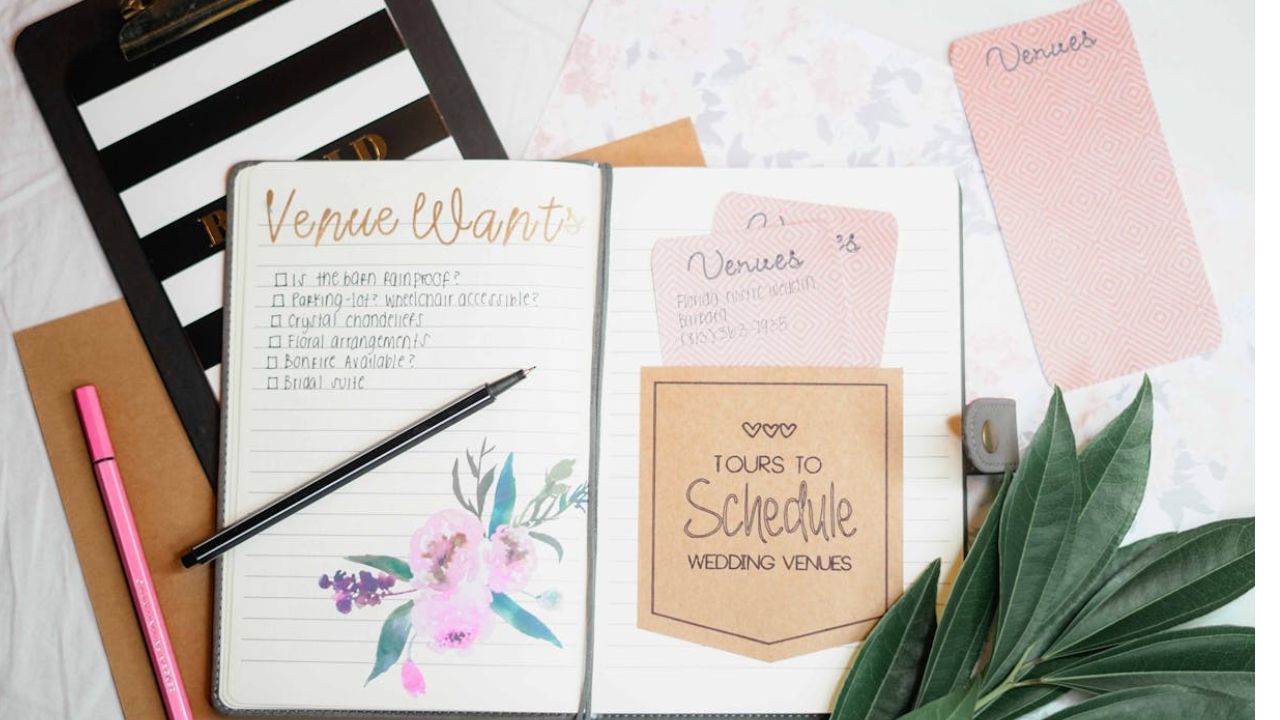 Venue Wants
Is the barn rainproof?
Parking-lot? Wheelchair accessible?
Crystal chandeliers
Floral arrangements
Bonfire Available?
Bridal suite
Venues
's
Florida rustic
Barbara
(813) 363-7935
TOURS TO
Schedule
WEDDING VENUES
Venues